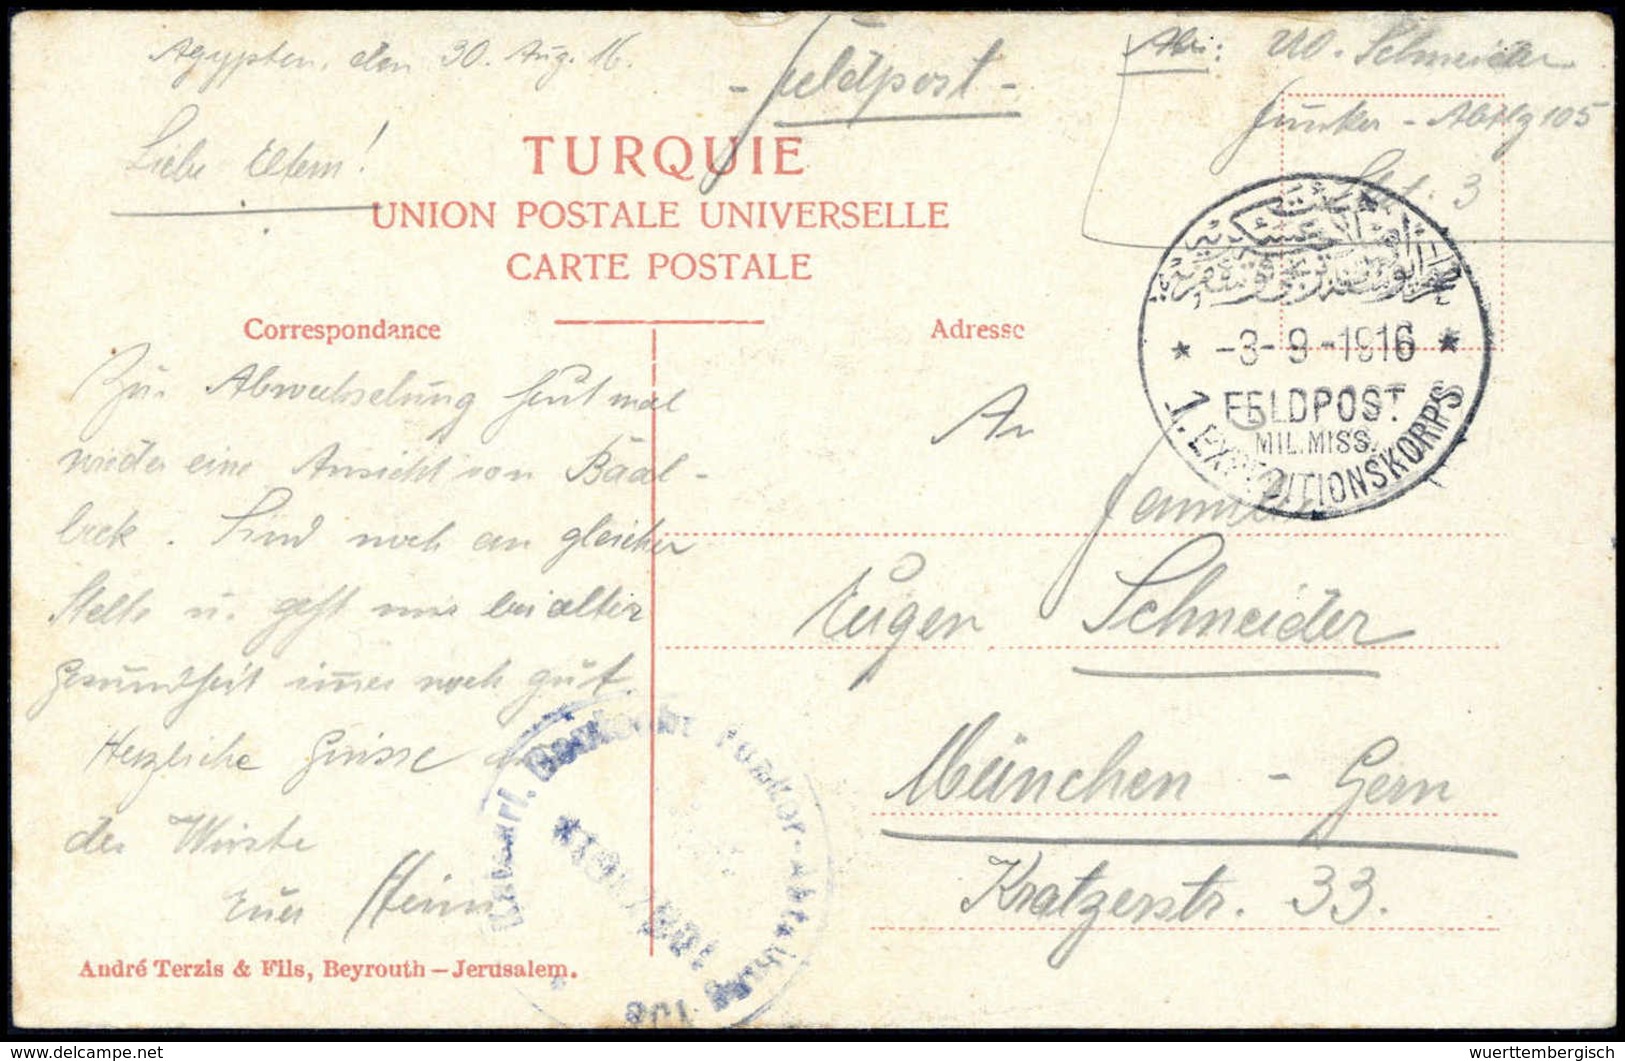 Ägypten, den 30. Aug. 16.
- Feldpost -
Abs: UO. Schneider
Funker - Abtlg 105
Stat. 3
Liebe Eltern!
TURQUIE
UNION POSTALE UNIVERSELLE
CARTE POSTALE
Correspondance
Adresse
-3-9-1916
FELDPOST
MIL.MISS.
1. EXPEDITIONSKORPS
Zur Abwechselung heut mal
wieder eine Ansicht von Baal-
beck. Sind noch an gleicher
Stelle u. geht mir bei alter
Gesundheit immer noch gut.
Herzliche Grüsse
der Würste
Euer Heini
An
Familie
Eugen Schneider
München - Gern
Kratzerstr. 33.
Funker-Abteilung 105
André Terzis & Fils, Beyrouth — Jerusalem.
wuerttembergisch